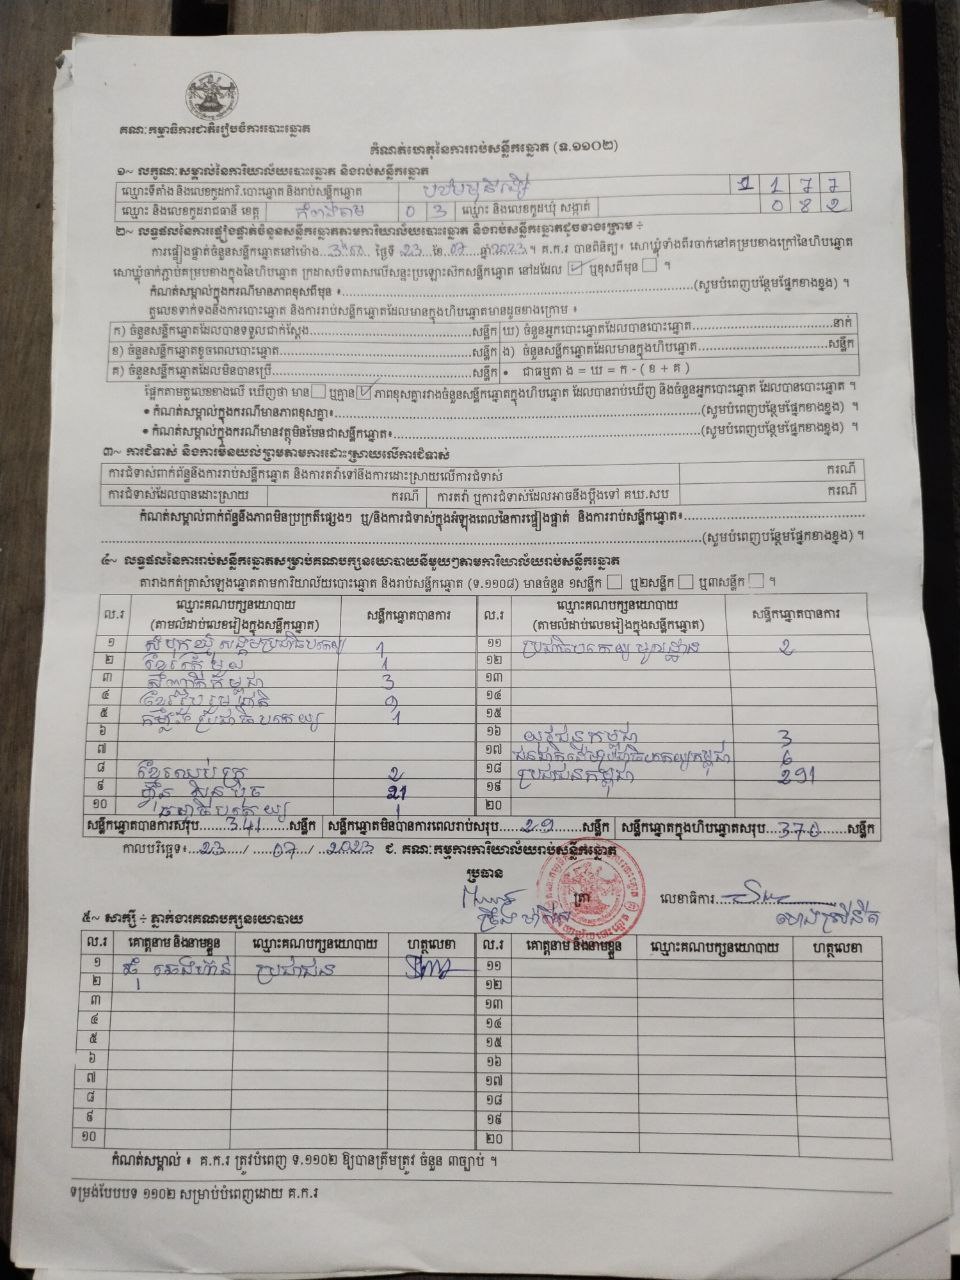 គណៈកម្មាធិការជាតិរៀបចំការបោះឆ្នោត
កំណត់ហេតុនៃការរាប់សន្លឹកឆ្នោត (ទ.១១០២)
១~ លក្ខណៈសម្គាល់នៃការិយាល័យបោះឆ្នោត និងរាប់សន្លឹកឆ្នោត
ឈ្មោះទីតាំង និងលេខកូដការិ.បោះឆ្នោត និងរាប់សន្លឹកឆ្នោត 1177
ឈ្មោះ និងលេខកូដរាជធានី ខេត្ត កំពង់ចាម 03 ឈ្មោះ និងលេខកូដឃុំ សង្កាត់ 082
២~ លទ្ធផលនៃការផ្ទៀងផ្ទាត់ចំនួនសន្លឹកឆ្នោតតាមការិយាល័យបោះឆ្នោត និងរាប់សន្លឹកឆ្នោតដូចខាងក្រោម ÷
ការផ្ទៀងផ្ទាត់ចំនួនសន្លឹកឆ្នោតនៅម៉ោង ថ្ងៃទី 23 ខែ 07 ឆ្នាំ 2023។ គ.ក.រ បានពិនិត្យ៖ សោឃ្លុំទាំងពីរចាក់នៅគម្របខាងក្រៅនៃហិបឆ្នោត
សោឃ្លុំចាក់ភ្ជាប់គម្របខាងក្នុងនៃហិបឆ្នោត ក្រដាសបិទពាសលើសន្ទះប្រឡោះស៊កសន្លឹកឆ្នោត នៅដដែល ☑ ឬខុសពីមុន ☐ ។
កំណត់សម្គាល់ក្នុងករណីមានភាពខុសពីមុន ៖ (សូមបំពេញបន្ថែមផ្នែកខាងខ្នង) ។
តួលេខទាក់ទងនឹងការបោះឆ្នោត និងការរាប់សន្លឹកឆ្នោតដែលមានក្នុងហិបឆ្នោតមានដូចខាងក្រោម ៖
ក) ចំនួនសន្លឹកឆ្នោតដែលបានទទួលជាក់ស្តែង សន្លឹក ឃ) ចំនួនអ្នកបោះឆ្នោតដែលបានបោះឆ្នោត នាក់
ខ) ចំនួនសន្លឹកឆ្នោតខូចពេលបោះឆ្នោត សន្លឹក ង) ចំនួនសន្លឹកឆ្នោតដែលមានក្នុងហិបឆ្នោត សន្លឹក
គ) ចំនួនសន្លឹកឆ្នោតដែលមិនបានប្រើ សន្លឹក • ជាធម្មតា ង = ឃ = ក - ( ខ + គ )
ផ្អែកតាមតួលេខខាងលើ ឃើញថា មាន ☐ ឬគ្មាន ☑ ភាពខុសគ្នារវាងចំនួនសន្លឹកឆ្នោតក្នុងហិបឆ្នោត ដែលបានរាប់ឃើញ និងចំនួនអ្នកបោះឆ្នោត ដែលបានបោះឆ្នោត ។
• កំណត់សម្គាល់ក្នុងករណីមានភាពខុសគ្នា៖ (សូមបំពេញបន្ថែមផ្នែកខាងខ្នង) ។
• កំណត់សម្គាល់ក្នុងករណីមានវត្ថុមិនមែនជាសន្លឹកឆ្នោត៖ (សូមបំពេញបន្ថែមផ្នែកខាងខ្នង) ។
៣~ ការជំទាស់ និងការមិនយល់ព្រមតាមការដោះស្រាយលើការជំទាស់
ការជំទាស់ពាក់ព័ន្ធនឹងការរាប់សន្លឹកឆ្នោត និងការតវ៉ាទៅនឹងការដោះស្រាយលើការជំទាស់ ករណី
ការជំទាស់ដែលបានដោះស្រាយ ករណី ការតវ៉ា ឬការជំទាស់ដែលអាចនឹងប្តឹងទៅ គឃ.សប ករណី
កំណត់សម្គាល់ពាក់ព័ន្ធនឹងភាពមិនប្រក្រតីផ្សេងៗ ឬ/និងការជំទាស់ក្នុងអំឡុងពេលនៃការផ្ទៀងផ្ទាត់ និងការរាប់សន្លឹកឆ្នោត៖
(សូមបំពេញបន្ថែមផ្នែកខាងខ្នង) ។
៤~ លទ្ធផលនៃការរាប់សន្លឹកឆ្នោតសម្រាប់គណបក្សនយោបាយនីមួយៗតាមការិយាល័យរាប់សន្លឹកឆ្នោត
តារាងកត់ត្រាសំឡេងឆ្នោតតាមការិយាល័យបោះឆ្នោត និងរាប់សន្លឹកឆ្នោត (ទ.១១០៨) មានចំនួន ១សន្លឹក ☐ ឬ២សន្លឹក ☐ ឬ៣សន្លឹក ☐ ។
ល.រ ឈ្មោះគណបក្សនយោបាយ (តាមលំដាប់លេខរៀងក្នុងសន្លឹកឆ្នោត) សន្លឹកឆ្នោតបានការ ល.រ ឈ្មោះគណបក្សនយោបាយ (តាមលំដាប់លេខរៀងក្នុងសន្លឹកឆ្នោត) សន្លឹកឆ្នោតបានការ
១ សំបុកឃ្មុំសង្គមប្រជាធិបតេយ្យ 1 ១១ ប្រជាធិបតេយ្យមូលដ្ឋាន 2
២ ខ្មែរតែមួយ 1 ១២
៣ សញ្ជាតិកម្ពុជា 3 ១៣
៤ ខ្មែររួបរួមជាតិ ១៤
៥ កម្លាំងប្រជាធិបតេយ្យ 1 ១៥
៦ ១៦ យុវជនកម្ពុជា 3
៧ ១៧ ជនជាតិដើមប្រជាធិបតេយ្យកម្ពុជា 6
៨ ខ្មែរឈប់ក្រ 2 ១៨ ប្រជាជនកម្ពុជា 291
៩ ហ៊្វុនស៊ិនប៉ិច 21 ១៩
១០ ធម្មាធិបតេយ្យ 1 ២០
សន្លឹកឆ្នោតបានការសរុប 341 សន្លឹក សន្លឹកឆ្នោតមិនបានការពេលរាប់សរុប 29 សន្លឹក សន្លឹកឆ្នោតក្នុងហិបឆ្នោតសរុប 370 សន្លឹក
កាលបរិច្ឆេទ៖ 23 / 07 / 2023 ជ. គណៈកម្មការការិយាល័យរាប់សន្លឹកឆ្នោត
ប្រធាន
ត្រា លេខាធិការ
៥~ សាក្សី ÷ ភ្នាក់ងារគណបក្សនយោបាយ
ល.រ គោត្តនាម និងនាមខ្លួន ឈ្មោះគណបក្សនយោបាយ ហត្ថលេខា ល.រ គោត្តនាម និងនាមខ្លួន ឈ្មោះគណបក្សនយោបាយ ហត្ថលេខា
១ ប្រជាជន ១១
២ ១២
៣ ១៣
៤ ១៤
៥ ១៥
៦ ១៦
៧ ១៧
៨ ១៨
៩ ១៩
១០ ២០
កំណត់សម្គាល់ ៖ គ.ក.រ ត្រូវបំពេញ ទ.១១០២ ឱ្យបានត្រឹមត្រូវ ចំនួន ៣ច្បាប់ ។
ទម្រង់បែបបទ ១១០២ សម្រាប់បំពេញដោយ គ.ក.រ